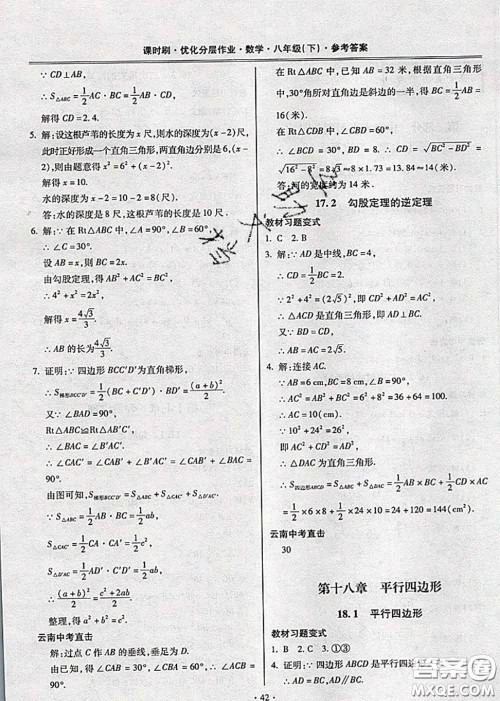 课时刷·优化分层作业·数学·八年级(下)·参考答案
∵ CD⊥AB,
∴ S△ABC=1/2 AC·BC=1/2 AB·CD.
解得 CD=2.4.
5. 解:设这根芦苇的长度为 x 尺,则水的深度为(x-2)尺,
此时正好形成一个直角三角形,两直角边分别是 6,(x-2)
尺,则由题意得 x²=6²+(x-2)².
解得 x=10.
水的深度为 x-2=10-2=8(尺)
答:水的深度为 8 尺,这根芦苇的长度为 10 尺.
6. 解:∵ 在 Rt△ABC 中,∠A=90°,∠B=60°,
∴ ∠C=30°.
设 AB=x,则 BC=2x.
由勾股定理,得 AB²+AC²=BC².
∴ 4²+x²=2x².
解得 x=4√3/3.
∴ AB 的长为 4√3/3.
7. 证明:∵ 四边形 BCC′D′ 为直角梯形,
∴ S梯形BCC′D′=1/2(BC+C′D′)·BD′=(a+b)²/2.
又∵ ∠BAD=90°,
Rt△ABC≌Rt△AB′C′.
∴ ∠BAC=∠B′AC′.
∴ ∠CAC′=∠CAB′+∠B′AC′=∠CAB′+∠BAC=
90°.
由图可知,S梯形BCC′D′=S△ABC+S△CAC′+S△D′AC′.
S△ABC=1/2 AB·BC=1/2 ab,
S△CAC′=1/2 CA·C′A=1/2 c²,
S△D′AC′=1/2 AD′·D′C′=1/2 ab,
∴ (a+b)²/2=(c²+2ab)/2.
整理,得 a²+b²=c².
云南中考直击
解:过点 C 作 AB 的垂线,垂足为 D.
由题意得 ∠CAB=30°,∠CBD=60°,
∴ ∠ACB=30°,∠BCD=30°.
∴ ∠CAB=∠ACB=30°.
在 Rt△ABC 中,已知 AB=32 米,根据直角三角形
中,30°角所对直角边是斜边的一半,得 BC=1/2 AB=
16(米).
在 Rt△BCD 中,∠CBD=60°,
∴ ∠BCD=30°,BD=8. ∴ CD=√(BC²-BD²)=
√(16²-8²)=8√3≈8×1.73=13.84≈14(米).
答:河的宽度约为 14 米.
17.2 勾股定理的逆定理
教材习题变式
1. C 2. B
3. 解:∵ AD 是中线,BC=4,
∴ CD=1/2 BC=2.
∵ 2²+4²=(2√5)²,即 CD²+AD²=AC²,
∴ △ACD 是直角三角形.
∴ AD⊥BC. 又∵ BD=CD,AD=AD,
∴ AB=AC=2√5.
4. 解:连接AC.
∵ AB=6 cm,BC=8 cm,∠B=90°,
∴ AC=10(cm).
∵ 10²+24²=26²,
∴ △ADC 为直角三角形.
∴ S四边形ABCD=S△ABC+S△ACD=1/2 AB×BC+1/2 AC×
CD=1/2×6×8+1/2×24×10=24+120=
144(cm²).
云南中考直击
30
第十八章 平行四边形
18.1 平行四边形
教材习题变式
1. B 2. C 3. ①③
4. 证明:∵ 四边形 ABCD 是平行四边
∴
42
答案圈
MXQE.COM